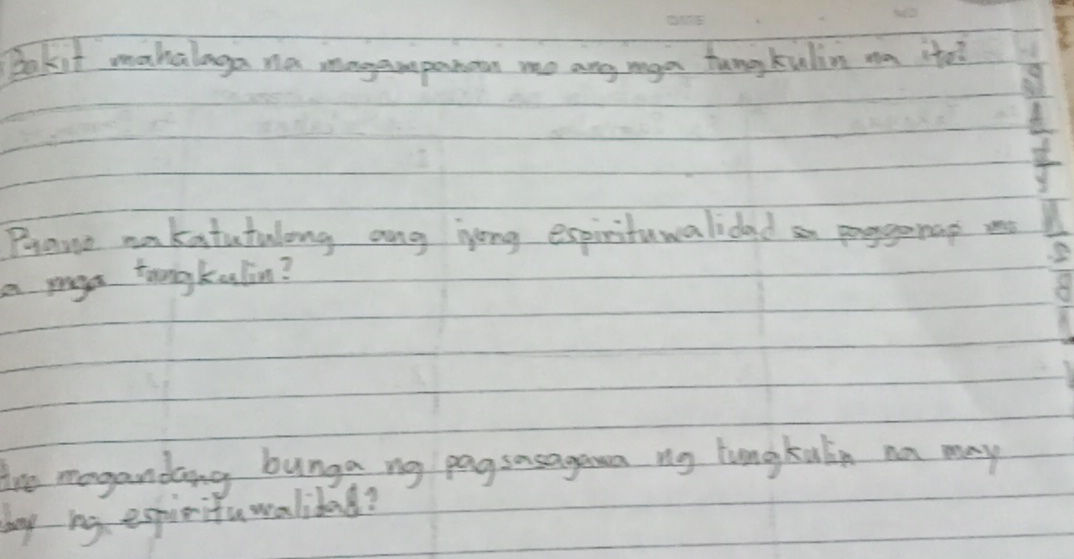 DATE NO
Bakit mahalaga na magampanan mo ang mga tungkulin na ito?
Paano nakatutulong ang iyong espirituwalidad sa pagganap mo
a mga tungkulin?
magandang bunga ng pagsasagawa ng tungkulin na may
ng espirituwalidad?